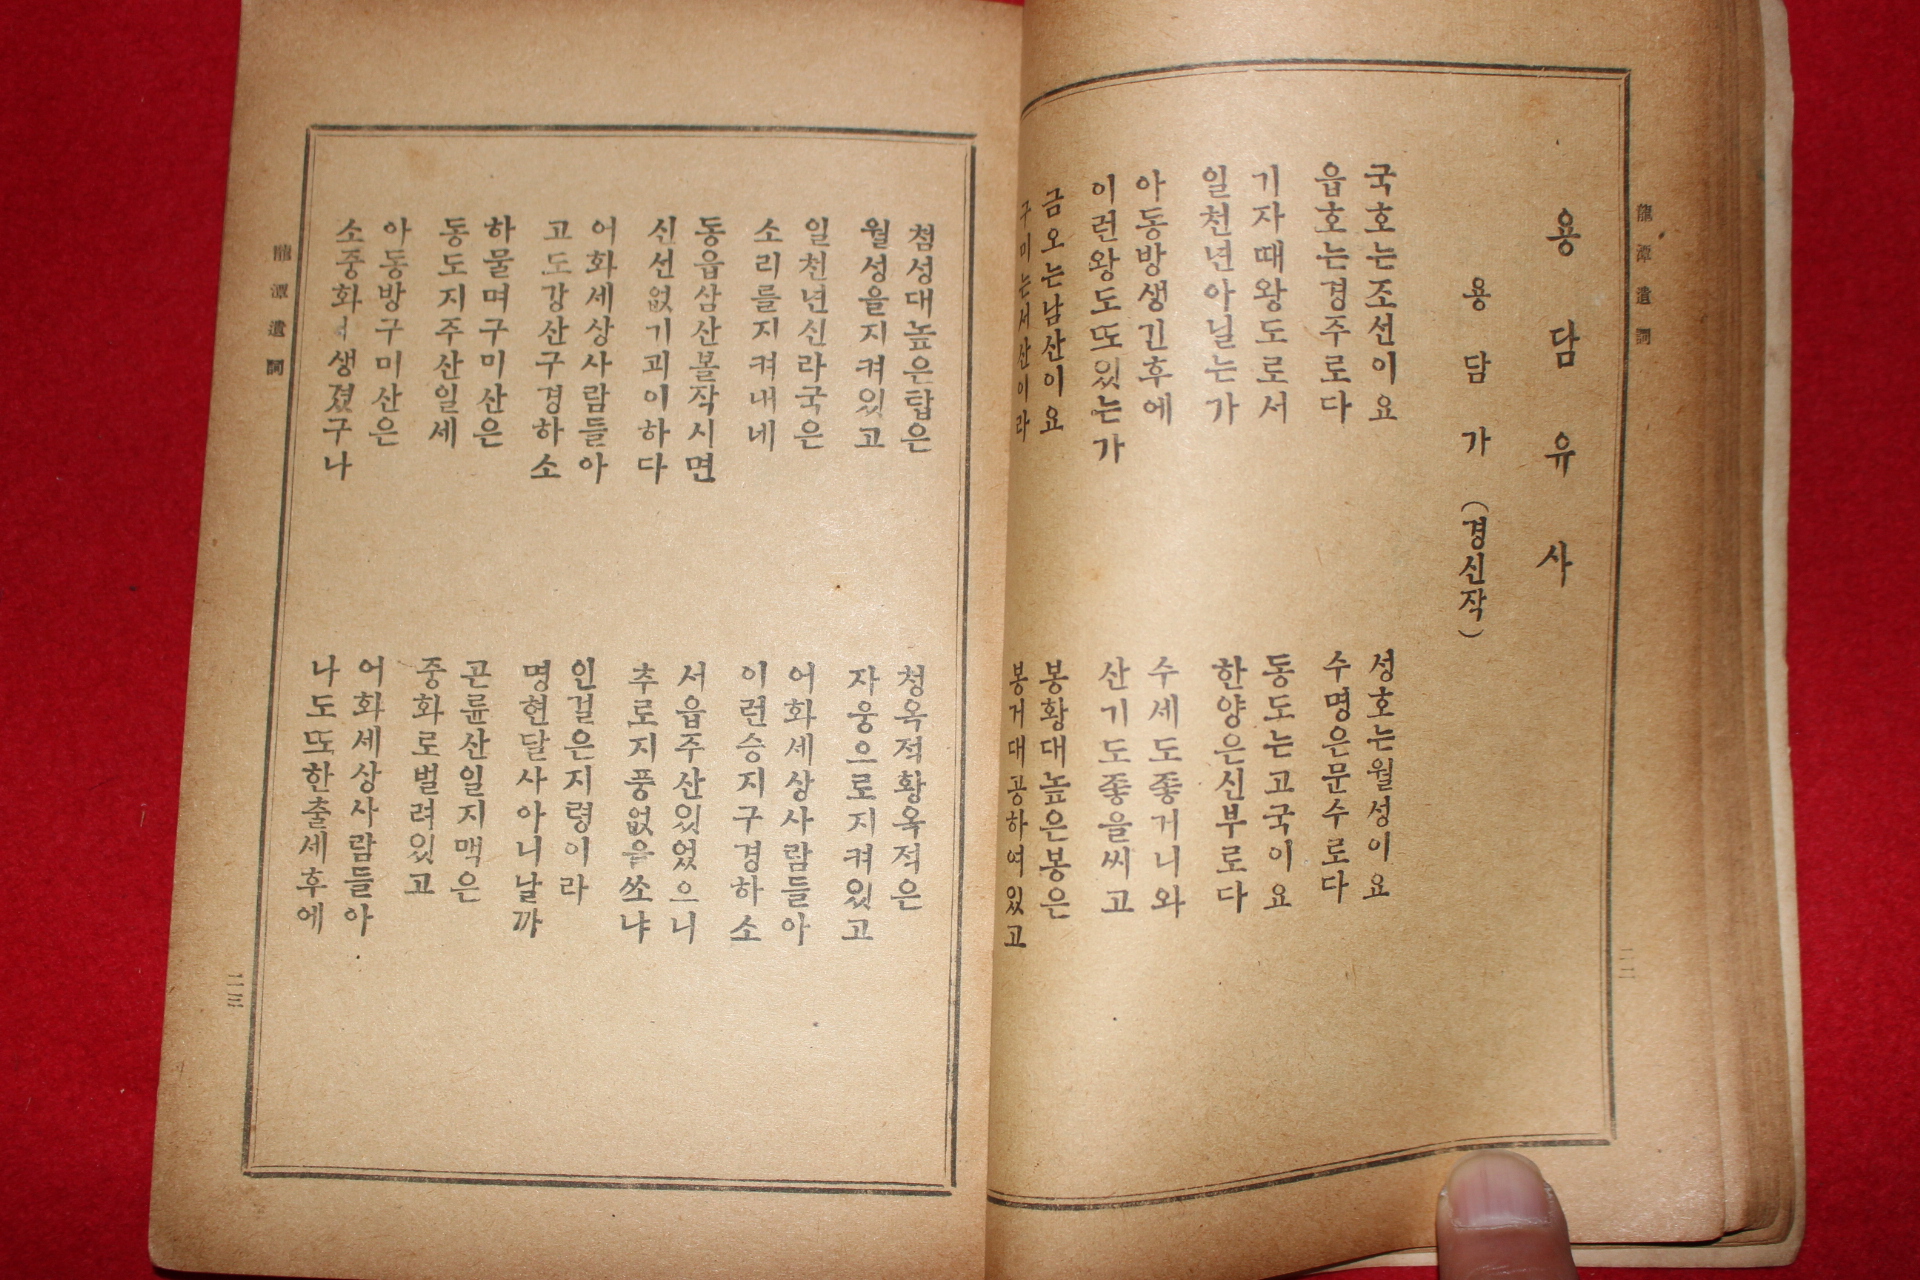 龍潭遺詞
용담유사
용담가 (경신작)
국호는조선이요
읍호는경주로다
성호는월성이요
수명은문수로다
기자때왕도로서
일천년아닐는가
동도는고국이요
한양은신부로다
아동방생긴후에
이런왕도또있는가
수세도좋거니와
산기도좋을씨고
금오는남산이요
구미는서산이라
봉황대높은봉은
봉거대공하여있고
二二
첨성대높은탑은
월성을지켜있고
청옥적황옥적은
자웅으로지켜있고
일천년신라국은
소리를지켜내네
어화세상사람들아
이런승지구경하소
동읍삼산볼작시면
신선없기괴이하다
서읍주산있었으니
추로지풍없을쏘냐
어화세상사람들아
고도강산구경하소
인걸은지령이라
명현달사아니날까
하물며구미산은
동도지주산일세
곤륜산일지맥은
중화로벌려있고
아동방구미산은
소중화 생겼구나
어화세상사람들아
나도또한출세후에
龍潭遺詞
二三